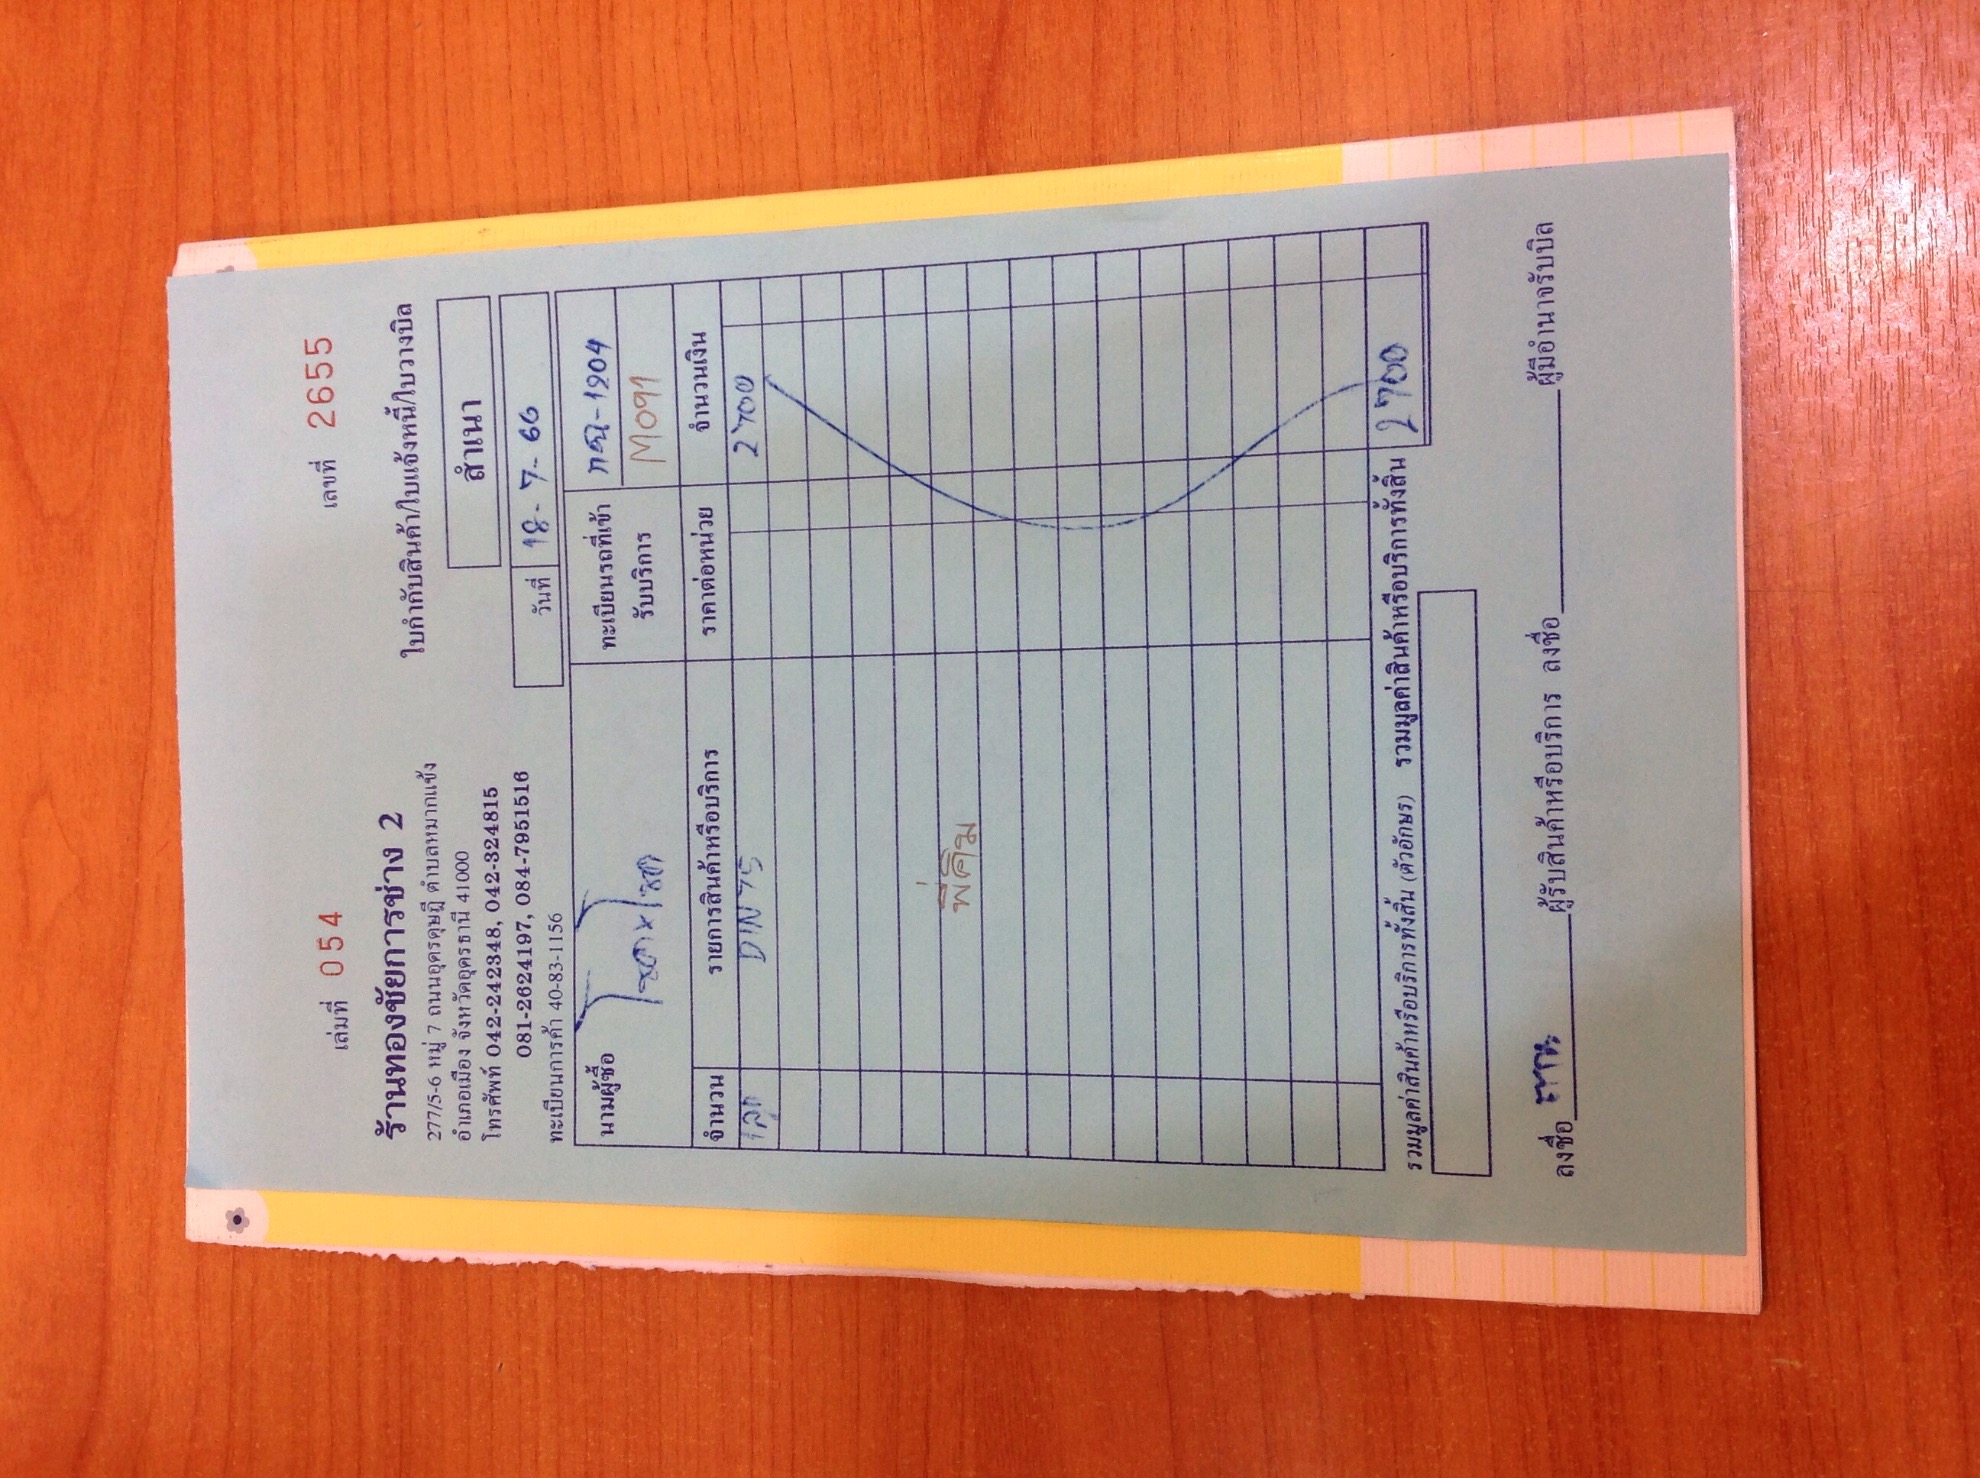 เล่มที่ 054 เลขที่ 2655
ร้านทองชัยการช่าง 2 ใบกำกับสินค้า/ใบแจ้งหนี้/ใบวางบิล
277/5-6 หมู่ 7 ถนนอุดรดุษฎี ตำบลหมากแข้ง
อำเภอเมือง จังหวัดอุดรธานี 41000 สำเนา
โทรศัพท์ 042-242348, 042-324815
081-2624197, 084-7951516
ทะเบียนการค้า 40-83-1156 วันที่ 18-7-66
นามผู้ซื้อ ทะเบียนรถที่เข้ารับบริการ
M091
จำนวน รายการสินค้าหรือบริการ ราคาต่อหน่วย จำนวนเงิน
DIN 75 2700
พี่คิม
รวมมูลค่าสินค้าหรือบริการทั้งสิ้น (ตัวอักษร) รวมมูลค่าสินค้าหรือบริการทั้งสิ้น 2700
ลงชื่อ ผู้รับสินค้าหรือบริการ ลงชื่อ ผู้มีอำนาจรับบิล